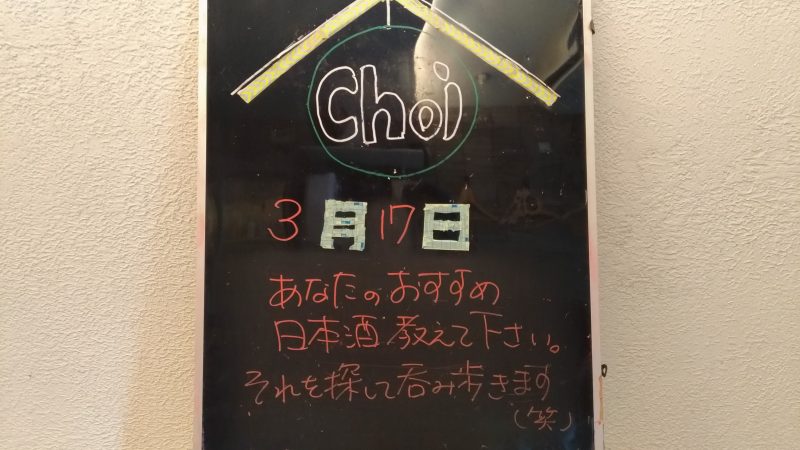 Choi
3月17日
あなたのおすすめ
日本酒教えて下さい。
それを探して呑み歩きます
(笑)